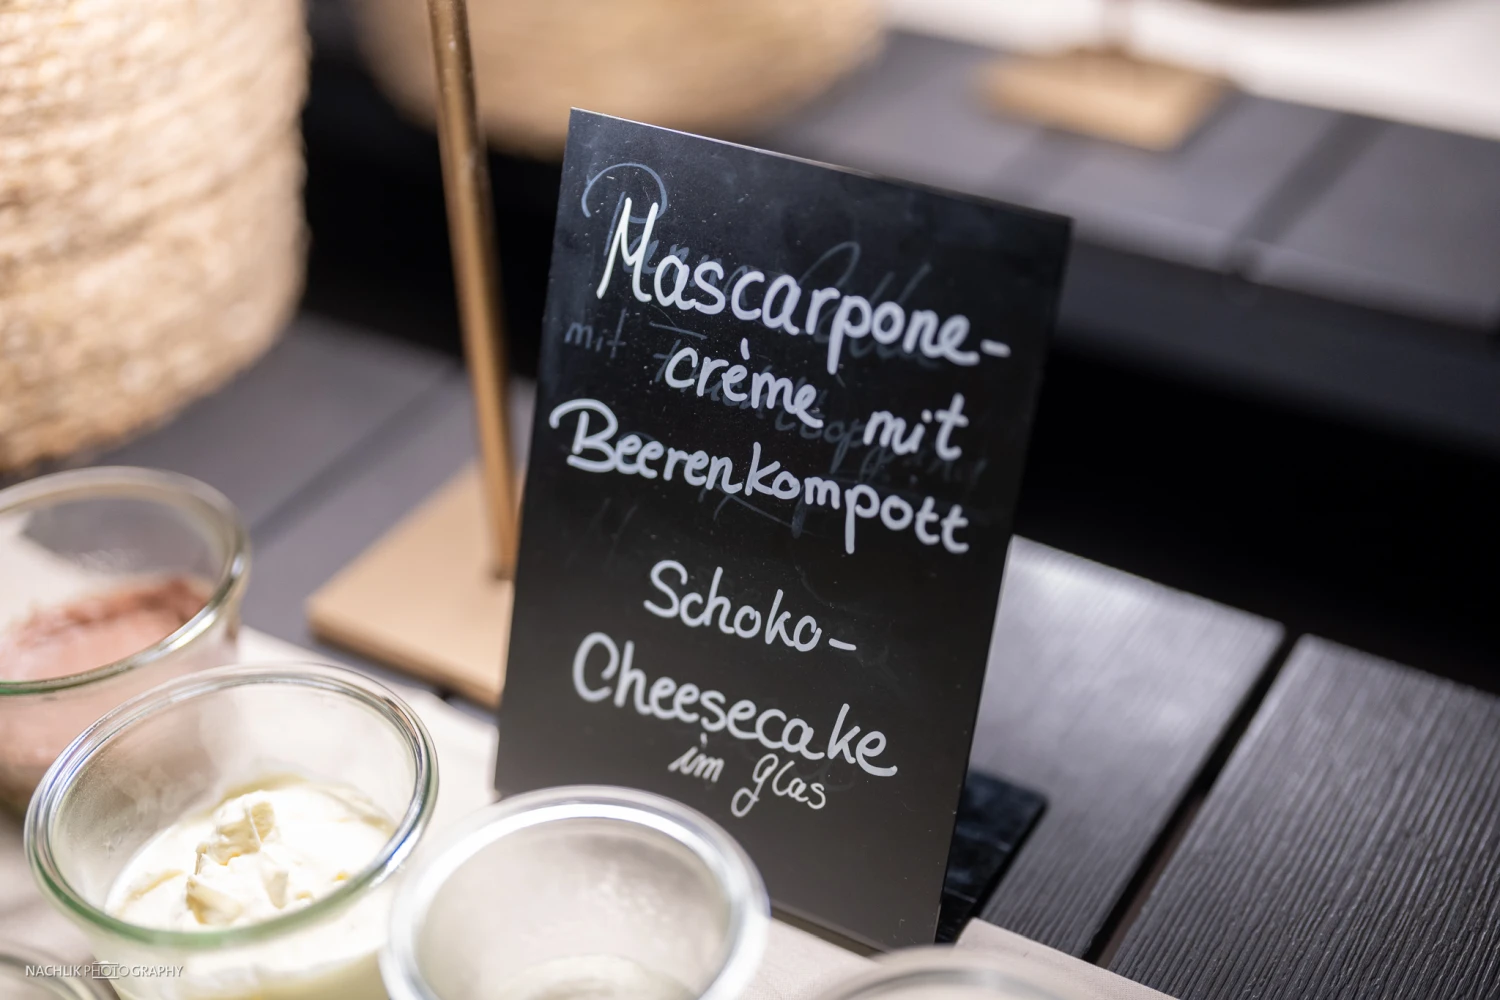 Mascarpone-
crème mit
Beerenkompott
Schoko-
Cheesecake
im glas
mit
NACHLIK PHOTOGRAPHY